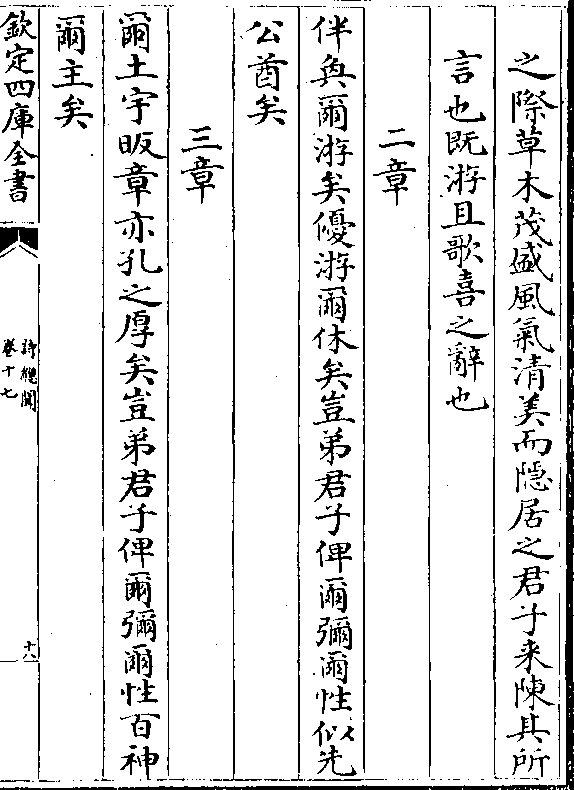 之際草木茂盛風氣清美而隠居之君子来陳其所
言也既游且歌喜之辭也
二章
伴奐爾游矣優游爾休矣豈弟君子俾爾彌爾性似先
公酋矣
三章
爾土宇昄章亦孔之厚矣豈弟君子俾爾彌爾性百神
爾主矣
欽定四庫全書
詩總聞
卷十七
十八